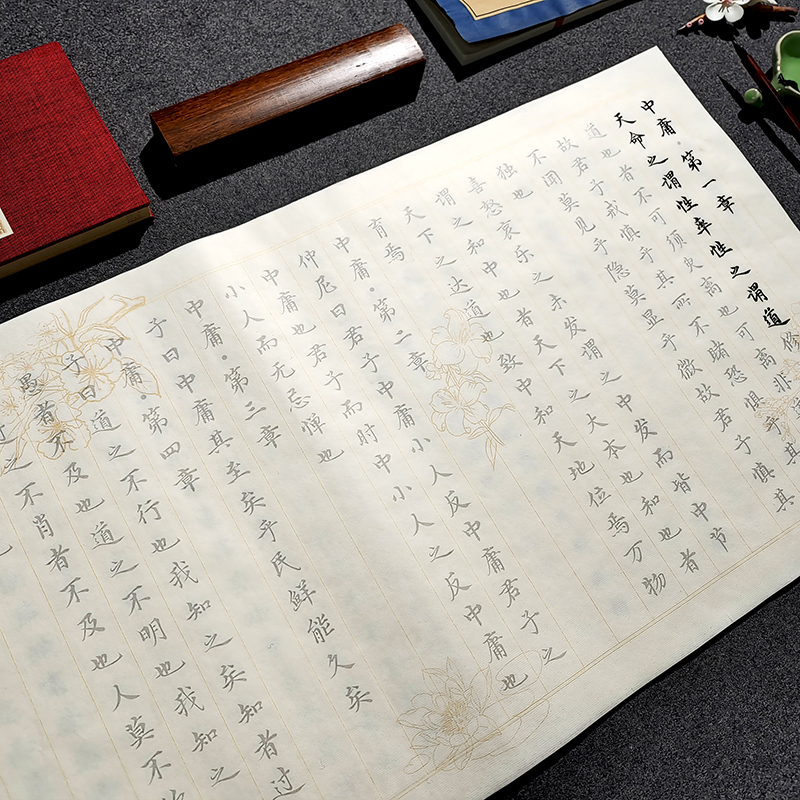 中庸·第一章
天命之谓性率性之谓道修
道也者不可须臾离也可离非
故君子戒慎乎其所不睹恐惧乎其
不闻莫见乎隐莫显乎微故君子慎其
独也
喜怒哀乐之未发谓之中发而皆中节
谓之和中也者天下之大本也和也者
天下之达道也致中和天地位焉万物
育焉
中庸·第二章
仲尼曰君子中庸小人反中庸君子之
中庸也君子而时中小人之反中庸也
小人而无忌惮也
中庸·第三章
子曰中庸其至矣乎民鲜能久矣
中庸·第四章
子曰道之不行也我知之矣知者过
愚者不及也道之不明也我知之
之不肖者不及也人莫不